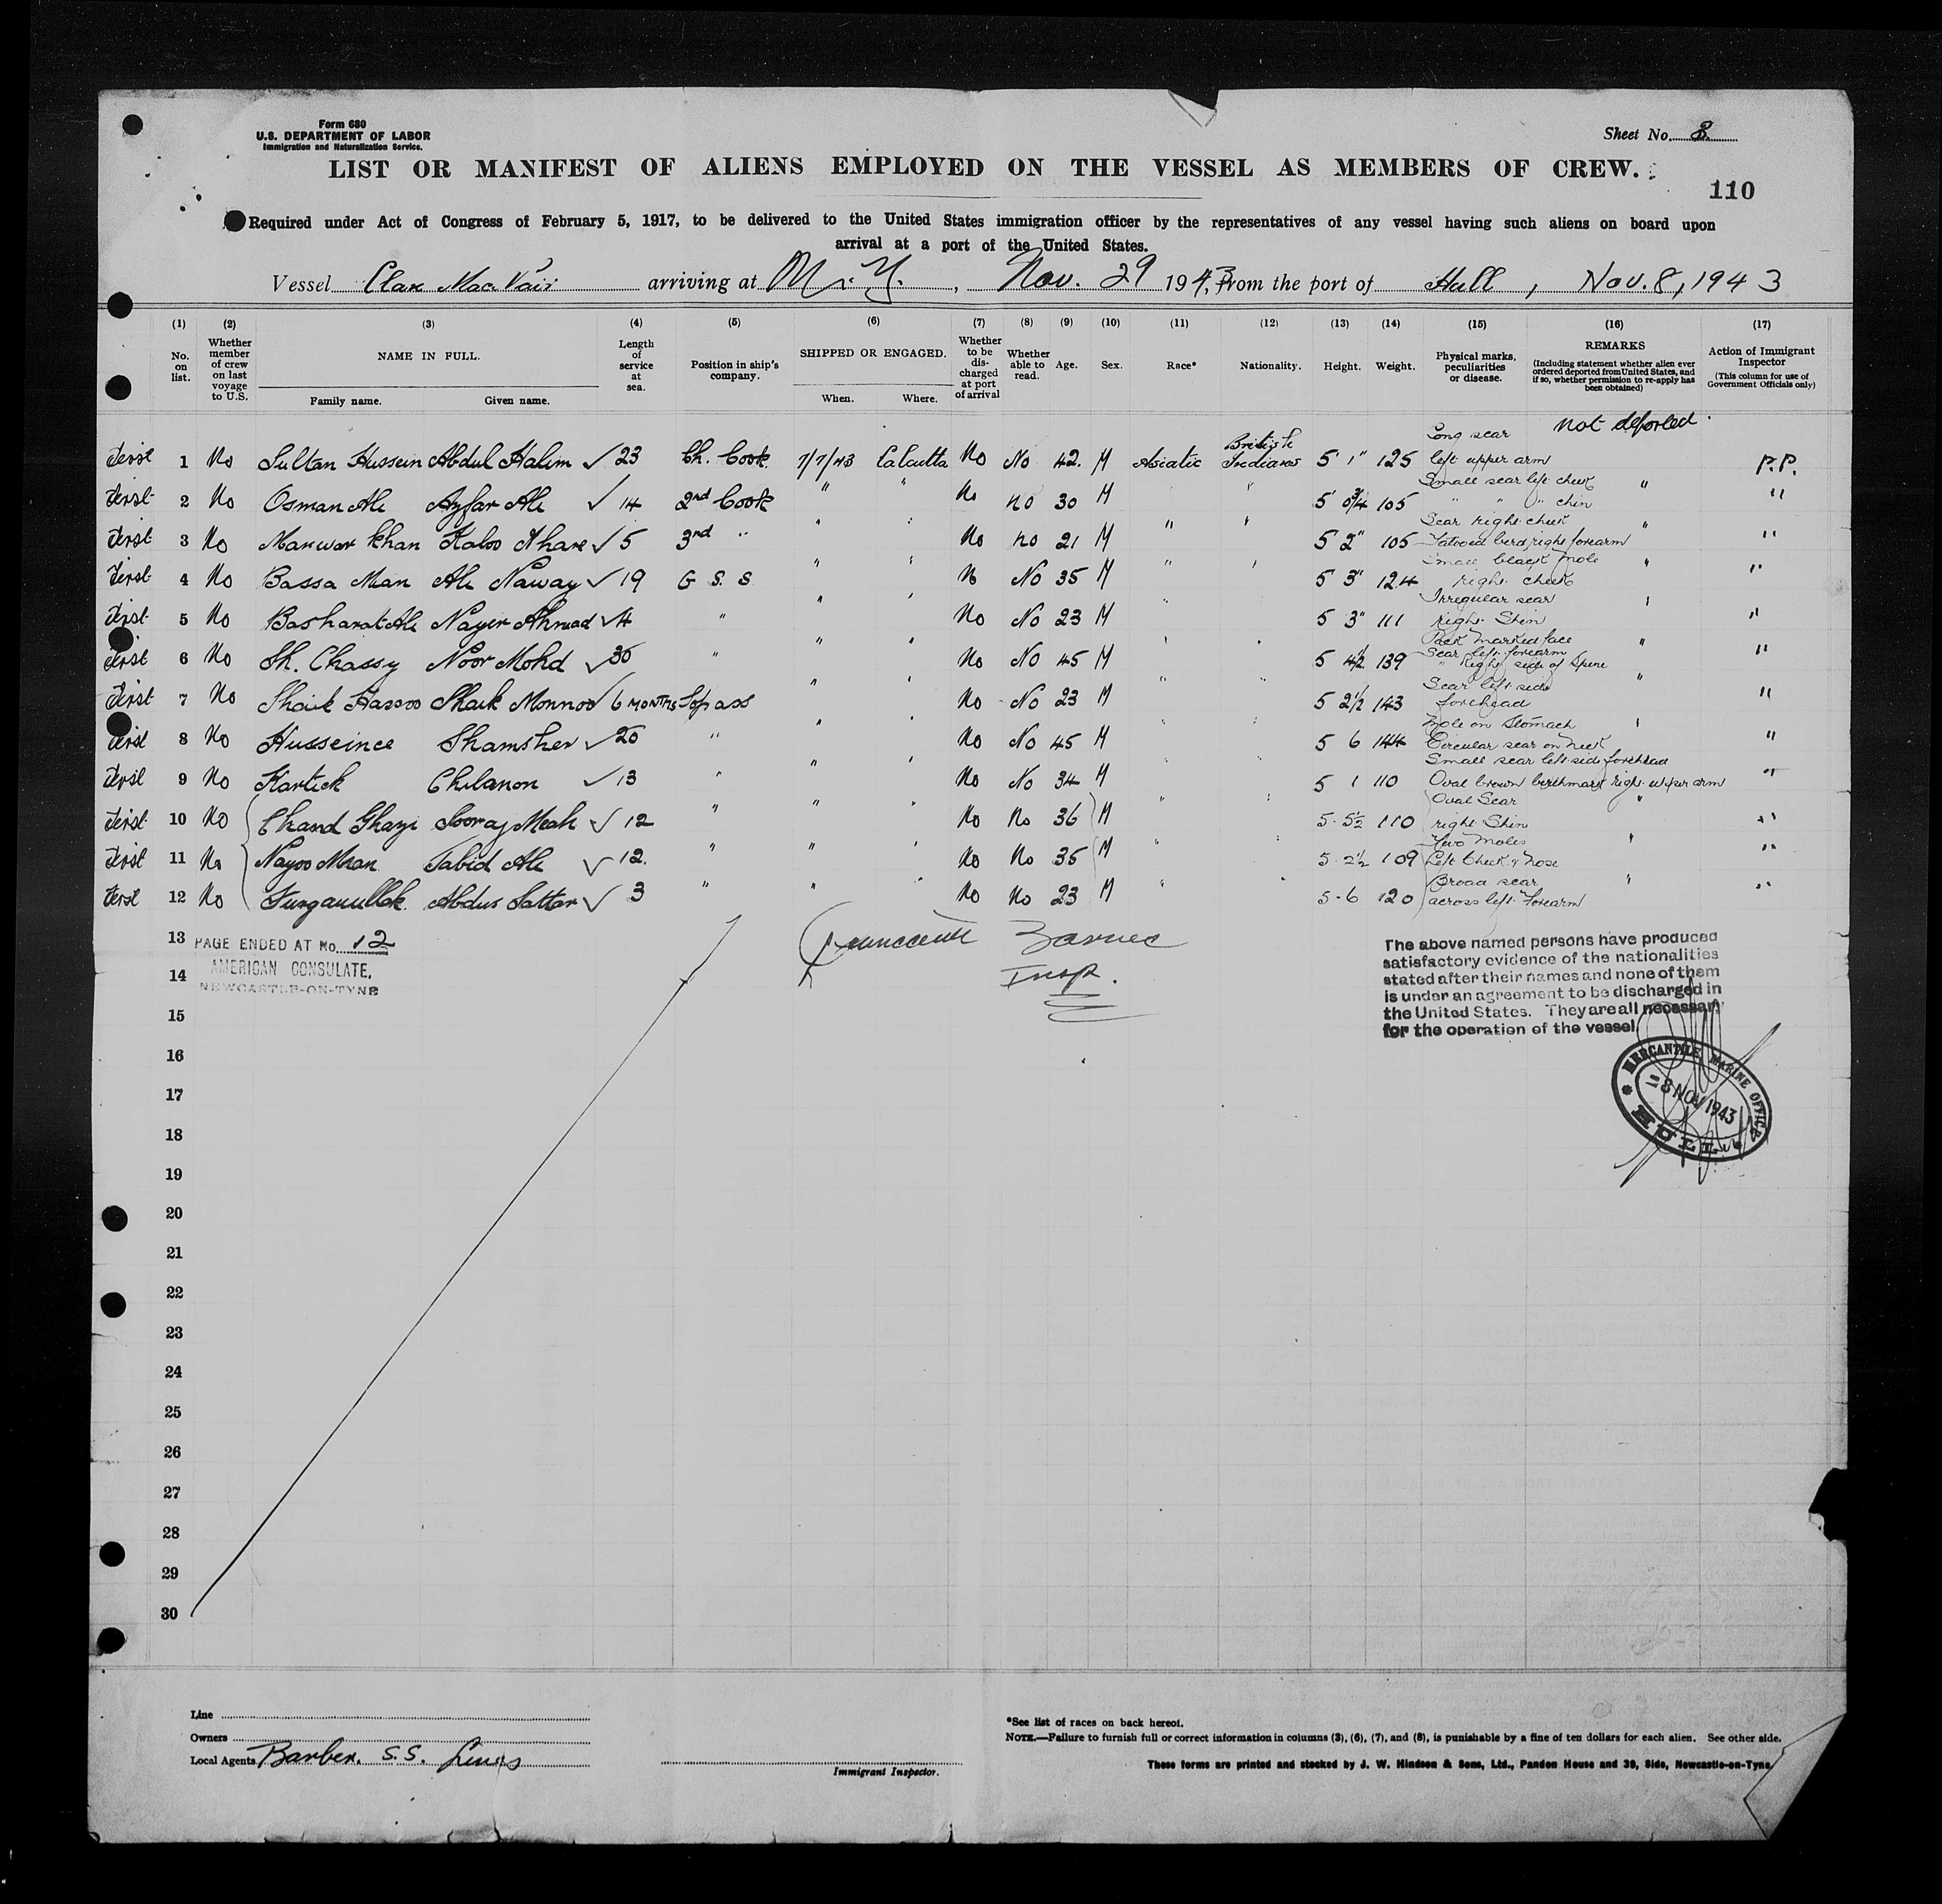 Form 680
U.S. DEPARTMENT OF LABOR
Immigration and Naturalization Service.
Sheet No.
LIST OR MANIFEST OF ALIENS EMPLOYED ON THE VESSEL AS MEMBERS OF CREW.
110
Required under Act of Congress of February 5, 1917, to be delivered to the United States immigration officer by the representatives of any vessel having such aliens on board upon
arrival at a port of the United States.
Vessel Clan MacNair arriving at N.Y., Nov. 29 1943, from the port of Hull, Nov. 8, 1943
(1) (2) (3) (4) (5) (6) (7) (8) (9) (10) (11) (12) (13) (14) (15) (16) (17)
No. on list. Whether member of crew on last voyage to U.S. NAME IN FULL. Family name. Given name. Length of service at sea. Position in ship's company. SHIPPED OR ENGAGED. When. Where. Whether to be discharged at port of arrival Whether able to read. Age. Sex. Race* Nationality. Height. Weight. Physical marks, peculiarities or disease. REMARKS (Including statement whether alien ever ordered deported from United States, and if so, whether permission to re-apply has been obtained) Action of Immigrant Inspector (This column for use of Government Officials only)
not deported.
First 1 No Sultan Hussein Abdul Halim ✓ 23 Ch. Cook 7/7/43 Calcutta No No 42. M Asiatic British Indians 5' 1" 125 Long scar left upper arm P.P.
First 2 No Osman Ali Ayfar Ali ✓ 14 2nd Cook " " No no 30 M " 5' 0¾ 105 Small scar left cheek " " " chin " "
First 3 No Manwar Khan Kaloo ✓ 5 3rd " " " No no 21 M " " 5' 2" 105 Scar right cheek Tatooed bird right forearm " "
First 4 No Bassa Mian Ali Naway ✓ 19 G. S. S " " No No 35 M " " 5' 3" 124 Small black mole right cheek " "
First 5 No Basharat Ali Nayer Ahmad ✓ 4 " " " No No 23 M " 5 3" 111 Irregular scar right Shin " "
First 6 No Sh. Chassy Noor Mohd ✓ 30 " " " No No 45 M " " 5 4½ 139 Pock marked face Scar left forearm " Right side of Spine " "
First 7 No Shaik Shaik Monnoo ✓ 6 MONTHS Topass " " No No 23 M " " 5 2½ 143 Scar left side forehead " "
First 8 No Husseince Shamsher ✓ 20 " " " No No 45 M " " 5 6 144 Mole on Stomach Circular scar on neck " "
First 9 No Kartick Chilanon ✓ 13 " " " No No 34 M " " 5 1 110 Small scar left side forehead Oval brown birthmark right upper arm "
First 10 No Chand Ghazi Sooraj Meah ✓ 12 " " " No No 36 M " " 5-5½ 110 Oval Scar right Shin " "
First 11 No Nayoo Mian Tabid Ali ✓ 12. " " " No No 35 M " " 5-2½ 109 Two Moles Left Cheek & Nose " "
First 12 No Furganullah Abdus Sattar ✓ 3 " " " No No 23 M " " 5-6 120 Broad scar across left Forearm " "
13
PAGE ENDED AT No. 12
AMERICAN CONSULATE,
NEWCASTLE-ON-TYNE
Insp.
The above named persons have produced
satisfactory evidence of the nationalities
stated after their names and none of them
is under an agreement to be discharged in
the United States. They are all necessary
for the operation of the vessel.
MERCANTILE MARINE OFFICE
8 NOV 1943
HULL
14
15
16
17
18
19
20
21
22
23
24
25
26
27
28
29
30
Line
Owners
Local Agents Barber. S.S. Lines
Immigrant Inspector.
*See list of races on back hereof.
NOTE.—Failure to furnish full or correct information in columns (3), (6), (7), and (8), is punishable by a fine of ten dollars for each alien. See other side.
These forms are printed and stocked by J. W. Hindson & Sons, Ltd., Pandon House and 39, Side, Newcastle-on-Tyne